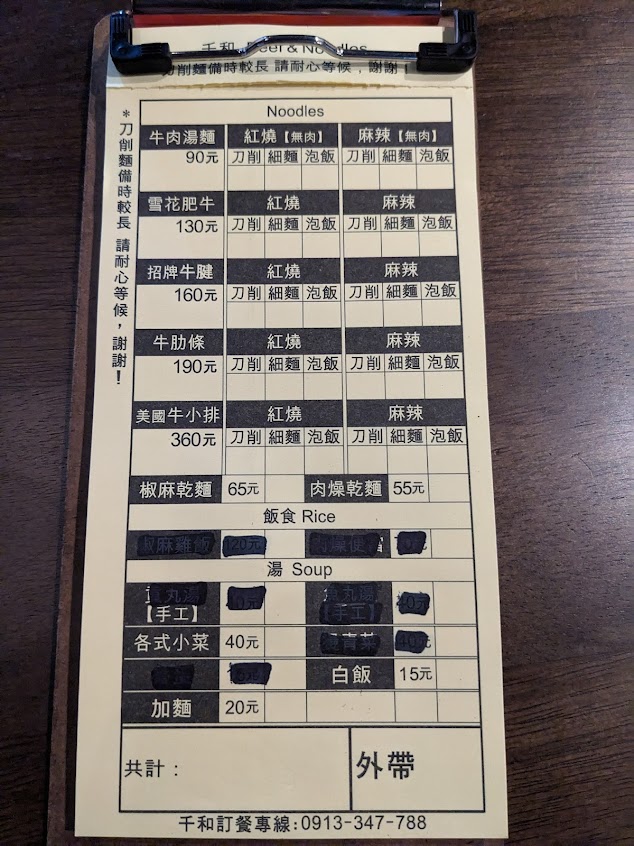 千和 Beef & Noodles
刀削麵備時較長 請耐心等候，謝謝！
＊刀削麵備時較長 請耐心等候，謝謝！
Noodles
牛肉湯麵 紅燒【無肉】 麻辣【無肉】
90元 刀削 細麵 泡飯 刀削 細麵 泡飯
雪花肥牛 紅燒 麻辣
130元 刀削 細麵 泡飯 刀削 細麵 泡飯
招牌牛腱 紅燒 麻辣
160元 刀削 細麵 泡飯 刀削 細麵 泡飯
牛肋條 紅燒 麻辣
190元 刀削 細麵 泡飯 刀削 細麵 泡飯
美國牛小排 紅燒 麻辣
360元 刀削 細麵 泡飯 刀削 細麵 泡飯
椒麻乾麵 65元 肉燥乾麵 55元
飯食 Rice
椒麻雞飯
湯 Soup
丸湯 丸湯
【手工】 【手工】
各式小菜 40元 青菜
白飯 15元
加麵 20元
共計： 外帶
千和訂餐專線:0913-347-788